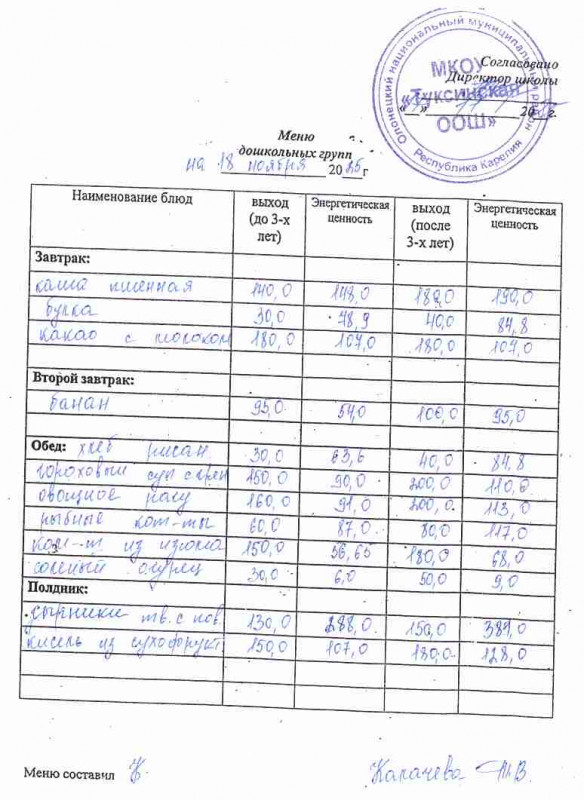 Согласовано
Директор школы
«__»____________20 г.
Олонецкий национальный муниципальный район
МКОУ
«Туксинская
ООШ»
Республика Карелия
Меню
дошкольных групп
на 18 ноября 2025 г
Наименование блюд | выход (до 3-х лет) | Энергетическая ценность | выход (после 3-х лет) | Энергетическая ценность
Завтрак:
каша пшенная 140,0 148,0 180,0 190,0
булка 30,0 48,9 40,0 84,8
какао с молоком 180,0 107,0 180,0 107,0
Второй завтрак:
банан 95,0 54,0 100,0 95,0
Обед: хлеб ржан. 30,0 63,6 40,0 84,8
гороховый суп с грен 150,0 90,0 200,0 110,0
овощное рагу 160,0 91,0 200,0 113,0
рыбные кот-ты 60,0 87,0 80,0 117,0
ком-т из изюма 150,0 56,65 180,0 68,0
соленый огурец 30,0 6,0 50,0 9,0
Полдник:
сырники тв. с пов. 130,0 288,0 150,0 381,0
кисель из сухофрукт 150,0 107,0 180,0 128,0
Меню составил Капачева Т.В.